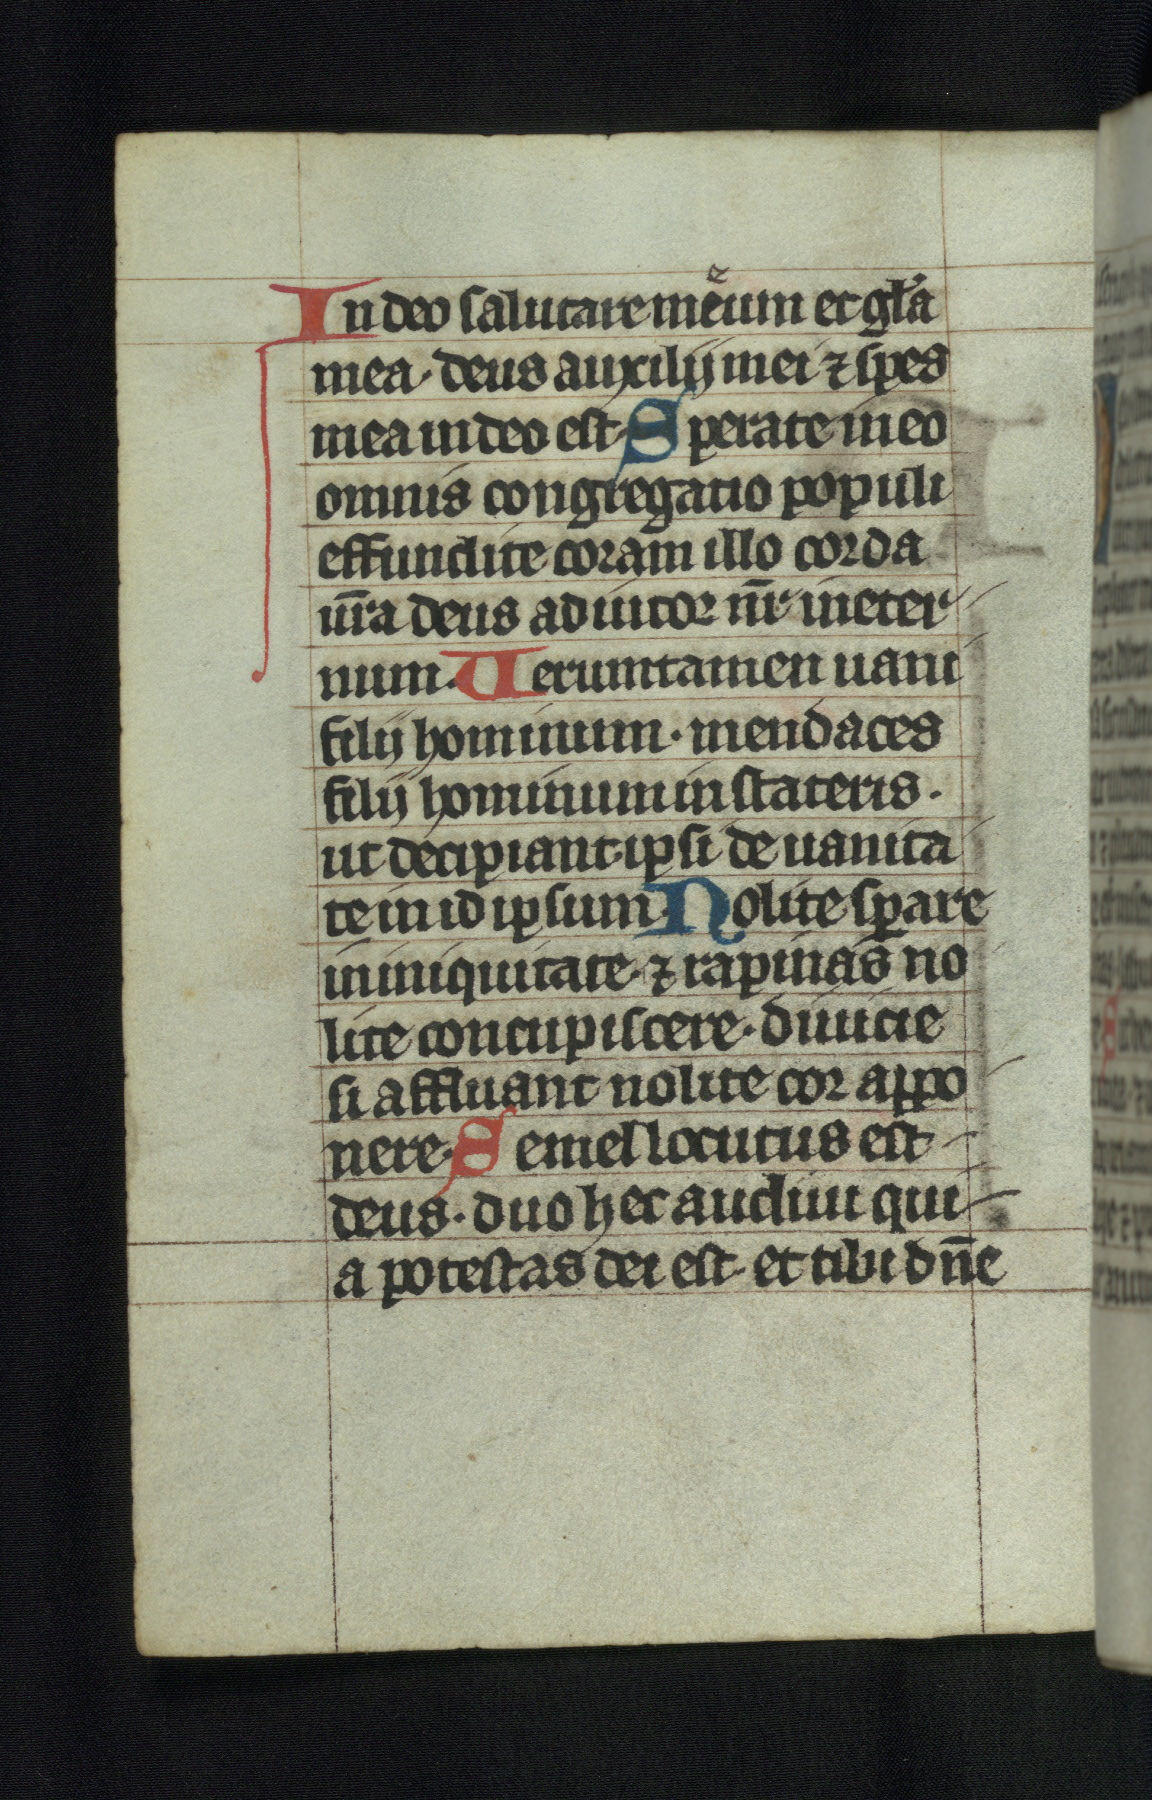 In deo salutare meum et gl̄a
mea. deus auxilij mei ⁊ spes
mea in deo est. Sperate in eo
omnis congregatio populi
effundite coram illo corda
ur̄a deus adiutor nr̄ in eter
num. Ueruntamen uani
filij hominum. mendaces
filij hominum in stateris.
ut decipiant ipsi de uanita
te in id ipsum. Nolite sꝑare
in iniquitate. ⁊ rapinas no
lite concupiscere. diuicie
si affluant nolite cor appo
nere. Semel locutus est
deus. duo hec audiui qui
a potestas dei est. et tibi dn̄e